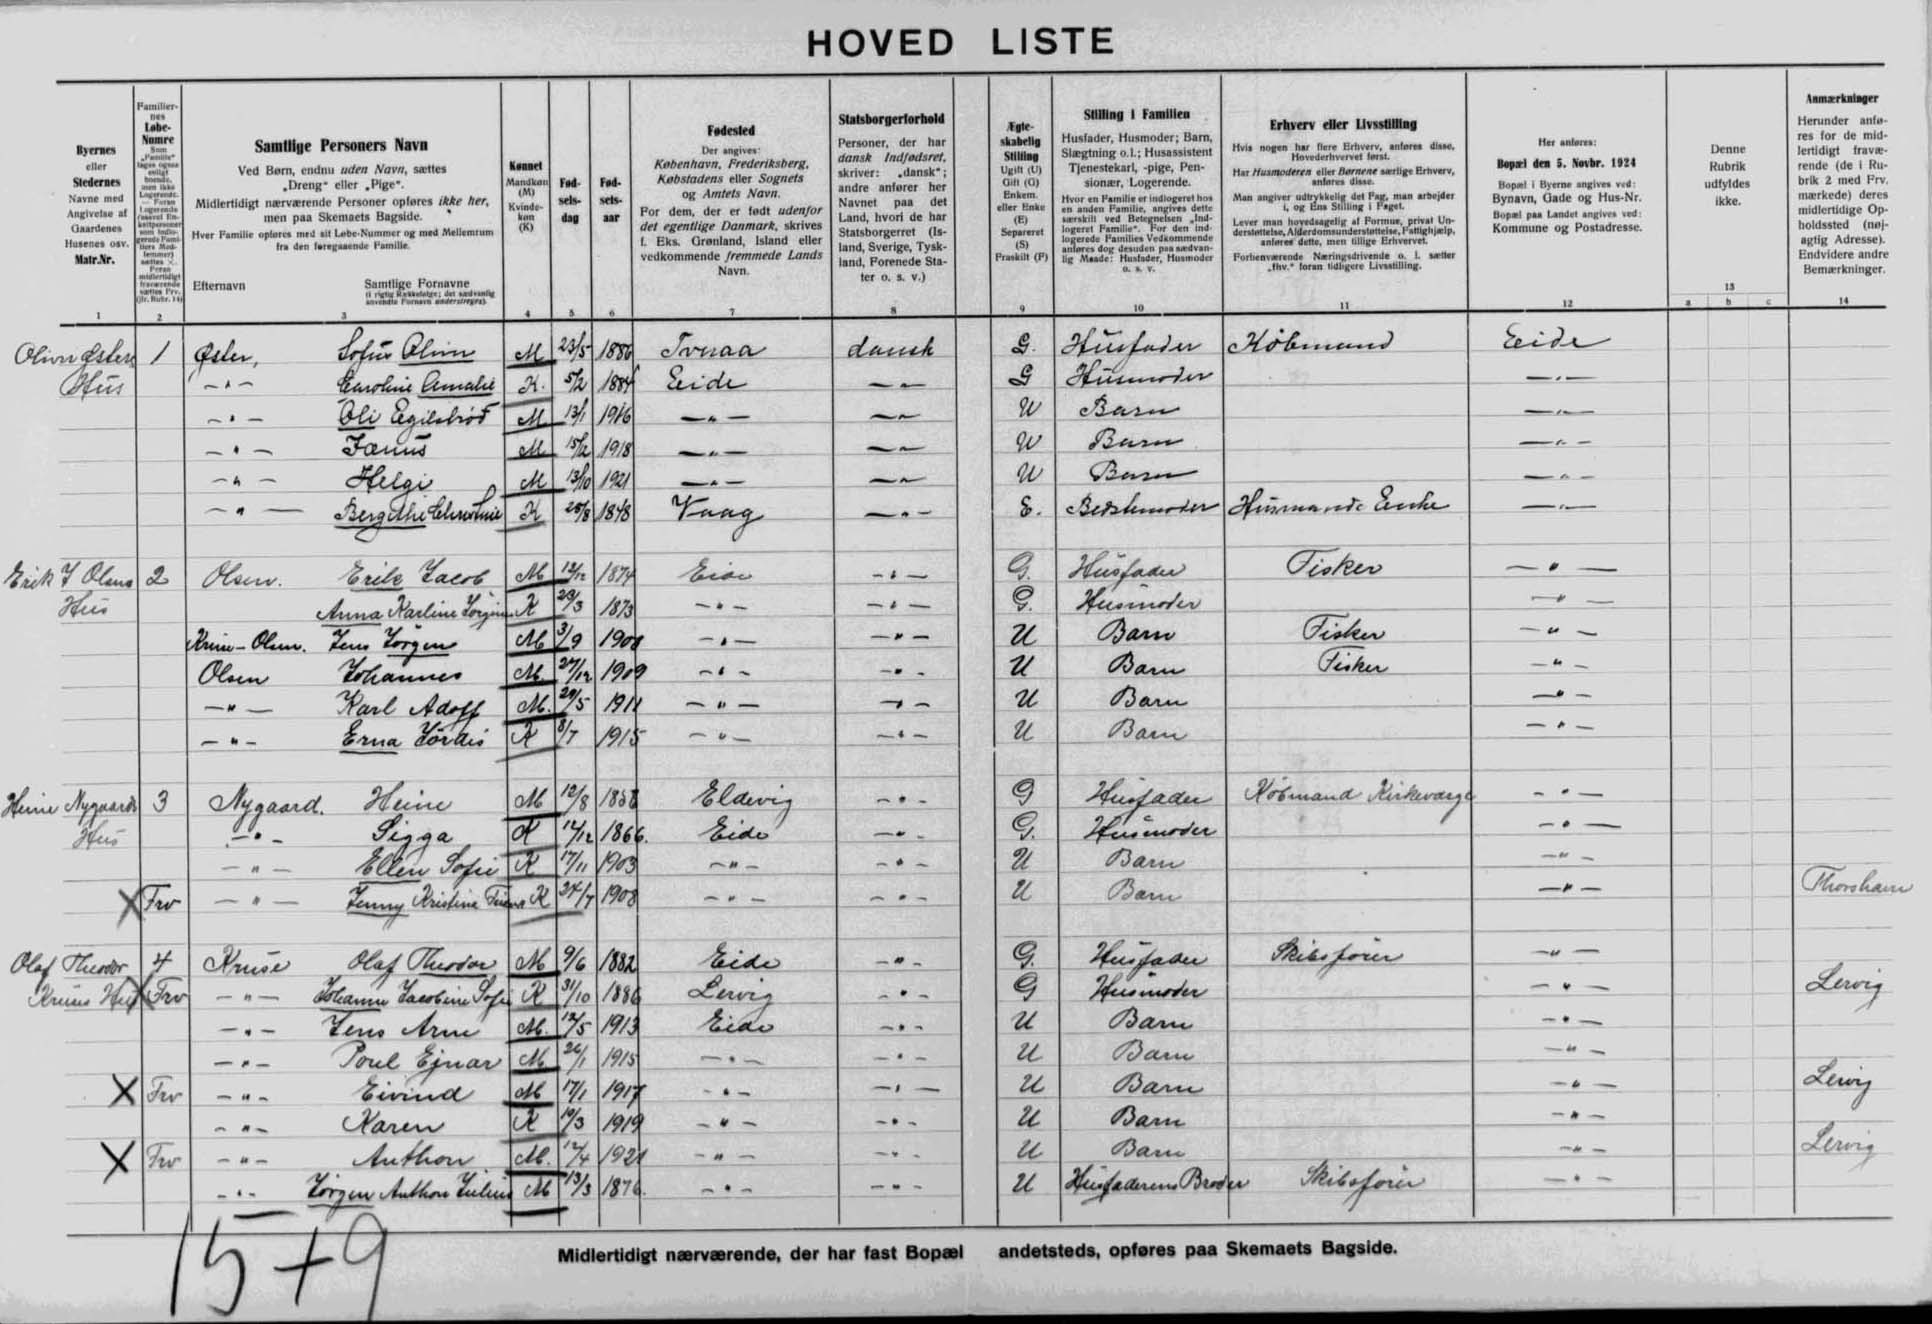 HOVED LISTE
Byernes
eller
Stedernes
Navne med
Angivelse af
Gaardenes
Husenes osv.
Matr.Nr.
1
Familier-
nes
Løbe-
Numre
2
Samtlige Personers Navn
Ved Børn, endnu uden Navn, sættes
„Dreng“ eller „Pige“.
Midlertidigt nærværende Personer opføres ikke her,
men paa Skemaets Bagside.
Hver Familie opføres med sit Løbe-Nummer og med Mellemrum
fra den foregaaende Familie.
Efternavn Samtlige Fornavne
(i rigtig Rækkefølge; det sædvanlig
anvendte Fornavn understreges).
3
Kønnet
Mandkøn
(M)
Kvinde-
køn
(K)
4
Fød-
sels-
dag
5
Fød-
sels-
aar
6
Fødested
Der angives:
København, Frederiksberg,
Købstadens eller Sognets
og Amtets Navn.
For dem, der er født udenfor
det egentlige Danmark, skrives
f. Eks. Grønland, Island eller
vedkommende fremmede Lands
Navn.
7
Statsborgerforhold
Personer, der har
dansk Indfødsret,
skriver: „dansk“;
andre anfører her
Navnet paa det
Land, hvori de har
Statsborgerret (Is-
land, Sverige, Tysk-
land, Forenede Sta-
ter o. s. v.)
8
Ægte-
skabelig
Stilling
Ugift (U)
Gift (G)
Enkem.
eller Enke
(E)
Separeret
(S)
Fraskilt (F)
9
Stilling i Familien
Husfader, Husmoder; Barn,
Slægtning o.l.; Husassistent
Tjenestekarl, -pige, Pen-
sionær, Logerende.
Hvor en Familie er indlogeret hos
en anden Familie, angives dette
særskilt ved Betegnelsen „Ind-
logeret Familie“. For den ind-
logerede Families Vedkommende
anføres dog desuden paa sædvan-
lig Maade: Husfader, Husmoder
o. s. v.
10
Erhverv eller Livsstilling
Hvis nogen har flere Erhverv, anføres disse,
Hovederhvervet først.
Har Husmoderen eller Børnene særlige Erhverv,
anføres disse.
Man angiver udtrykkelig det Fag, man arbejder
i, og Ens Stilling i Faget.
Lever man hovedsagelig af Formue, privat Un-
derstøttelse, Alderdomsunderstøttelse, Fattighjælp,
anføres dette, men tillige Erhvervet.
Forhenværende Næringsdrivende o. l. sætter
„fhv.“ foran tidligere Livsstilling.
11
Her anføres:
Bopæl den 5. Novbr. 1924
Bopæl i Byerne angives ved:
Bynavn, Gade og Hus-Nr.
Bopæl paa Landet angives ved:
Kommune og Postadresse.
12
Denne
Rubrik
udfyldes
ikke.
13
a b c
Anmærkninger
Herunder anfø-
res for de mid-
lertidigt fravæ-
rende (de i Ru-
brik 2 med Frv.
mærkede) deres
midlertidige Op-
holdssted (nøj-
agtig Adresse).
Endvidere andre
Bemærkninger.
14
Øster, 1 Øster, Sofus Olivur M 23/5 1886 Tveraa dansk G. Husfader Købmand Eide
Hus —"— Caroline Amalie K. 5/2 1884 Eide —"— G Husmoder —"—
—"— Oli Egilstrød M 13/1 1916 —"— —"— U Barn —"—
—"— Janus M 15/2 1918 —"— —"— U Barn —"—
—"— Helgi M 13/10 1921 —"— —"— U Barn —"—
—"— Bergithe K 1848 Vaag —"— E. Bedstemoder Husmands Enke —"—
Erik J Olsens 2 Olsen. Erik Jacob M 12/12 1874 Eide —"— G. Husfader Fisker —"—
Hus Anna Karline K 23/3 1873 —"— —"— G. Husmoder —"—
Kruse-Olsen. Jens Jörgen M 3/9 1908 —"— —"— U Barn Fisker —"—
Olsen Johannes M. 27/12 1909 —"— —"— U Barn Fisker —"—
—"— Karl Adolf M. 29/5 1911 —"— —"— U Barn —"—
—"— Erna Jördis K 8/7 1915 —"— —"— U Barn —"—
Heine Nygaards 3 Nygaard. Heine M 12/8 1858 Eldevig —"— G Husfader Købmand Kirkeværge —"—
Hus —"— Sigga K 12/12 1866. Eide —"— G. Husmoder —"—
—"— Ellen Sofie K 17/11 1903 —"— —"— U Barn —"—
X Frv —"— Jenny Kristine K 24/7 1908 —"— —"— U Barn —"— Thorshavn
Olaf Theodor 4 Kruse Olaf Theodor M 9/6 1882 Eide —"— G. Husfader Skibsfører —"—
Kruses Hus X Frv —"— Johanne Jacobine Sofie K 31/10 1886 Lervig —"— G Husmoder —"— Lervig
—"— Jens Arne M. 12/5 1913 Eide —"— U Barn —"—
—"— Poul Ejnar M. 26/1 1915 —"— —"— U Barn —"—
X Frv —"— Eivind M 17/1 1917 —"— —"— U Barn —"— Lervig
—"— Karen K 10/3 1919 —"— —"— U Barn —"—
X Frv —"— Anthon M. 12/4 1921 —"— —"— U Barn —"— Lervig
—"— Jörgen Anthon Julius M 13/3 1876. —"— —"— U Husfaderens Broder Skibsfører —"—
15+9
Midlertidigt nærværende, der har fast Bopæl andetsteds, opføres paa Skemaets Bagside.